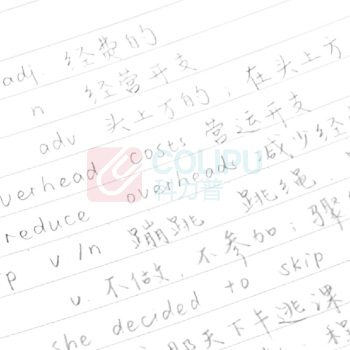 adj. 经费的
n 经营开支
adv 头上方的, 在头上方
overhead cost: 营运开支
reduce overheads 减少经
p v/n 蹦跳 跳绳
v. 不做, 不参加; 骤
she decided to skip
那天下午逃课
COLIPU
科力普